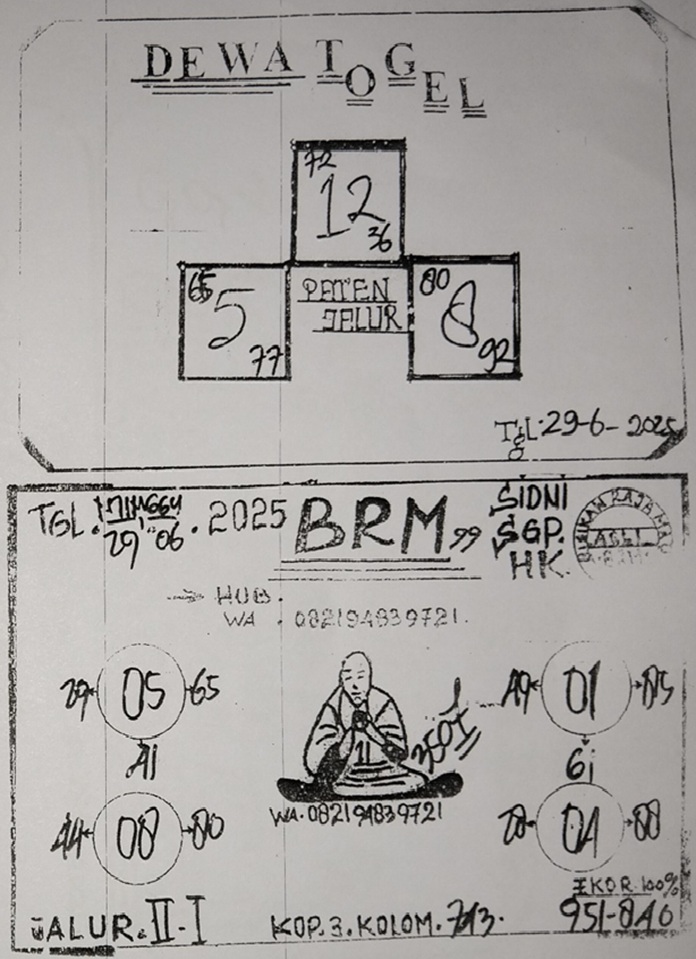 DEWA TOGEL
72
12
36
65
5
77
PATEN
JALUR
80
8
92
TGL.29-6-2025
TGL. MINGGU
29 06 . 2025
BRM 99
SIDNI
SGP.
HK.
ASLI
HUB.
WA . 082194839721.
29 05 65
41
49 01 85
61
44 08 80
WA.082194839721
04 88
EKOR.100%
JALUR.II-I
KOP.3.KOLOM.713.
951-840